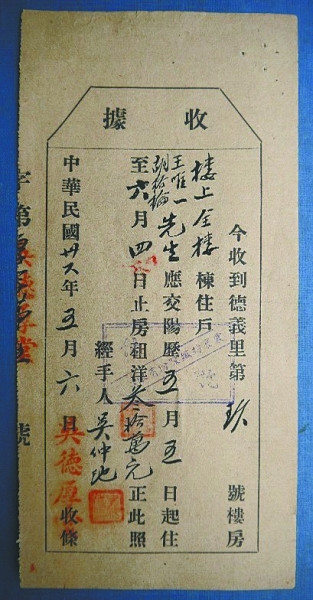 收據
今收到德義里第玖號樓房
樓上全樓棟住戶
王唯一
先生應交陽歷五月五日起住
至六月四日止房租洋叁拾萬元正此照
經手人吳仲地
中華民國卅六年五月六日
吳德厚收條
字第
號